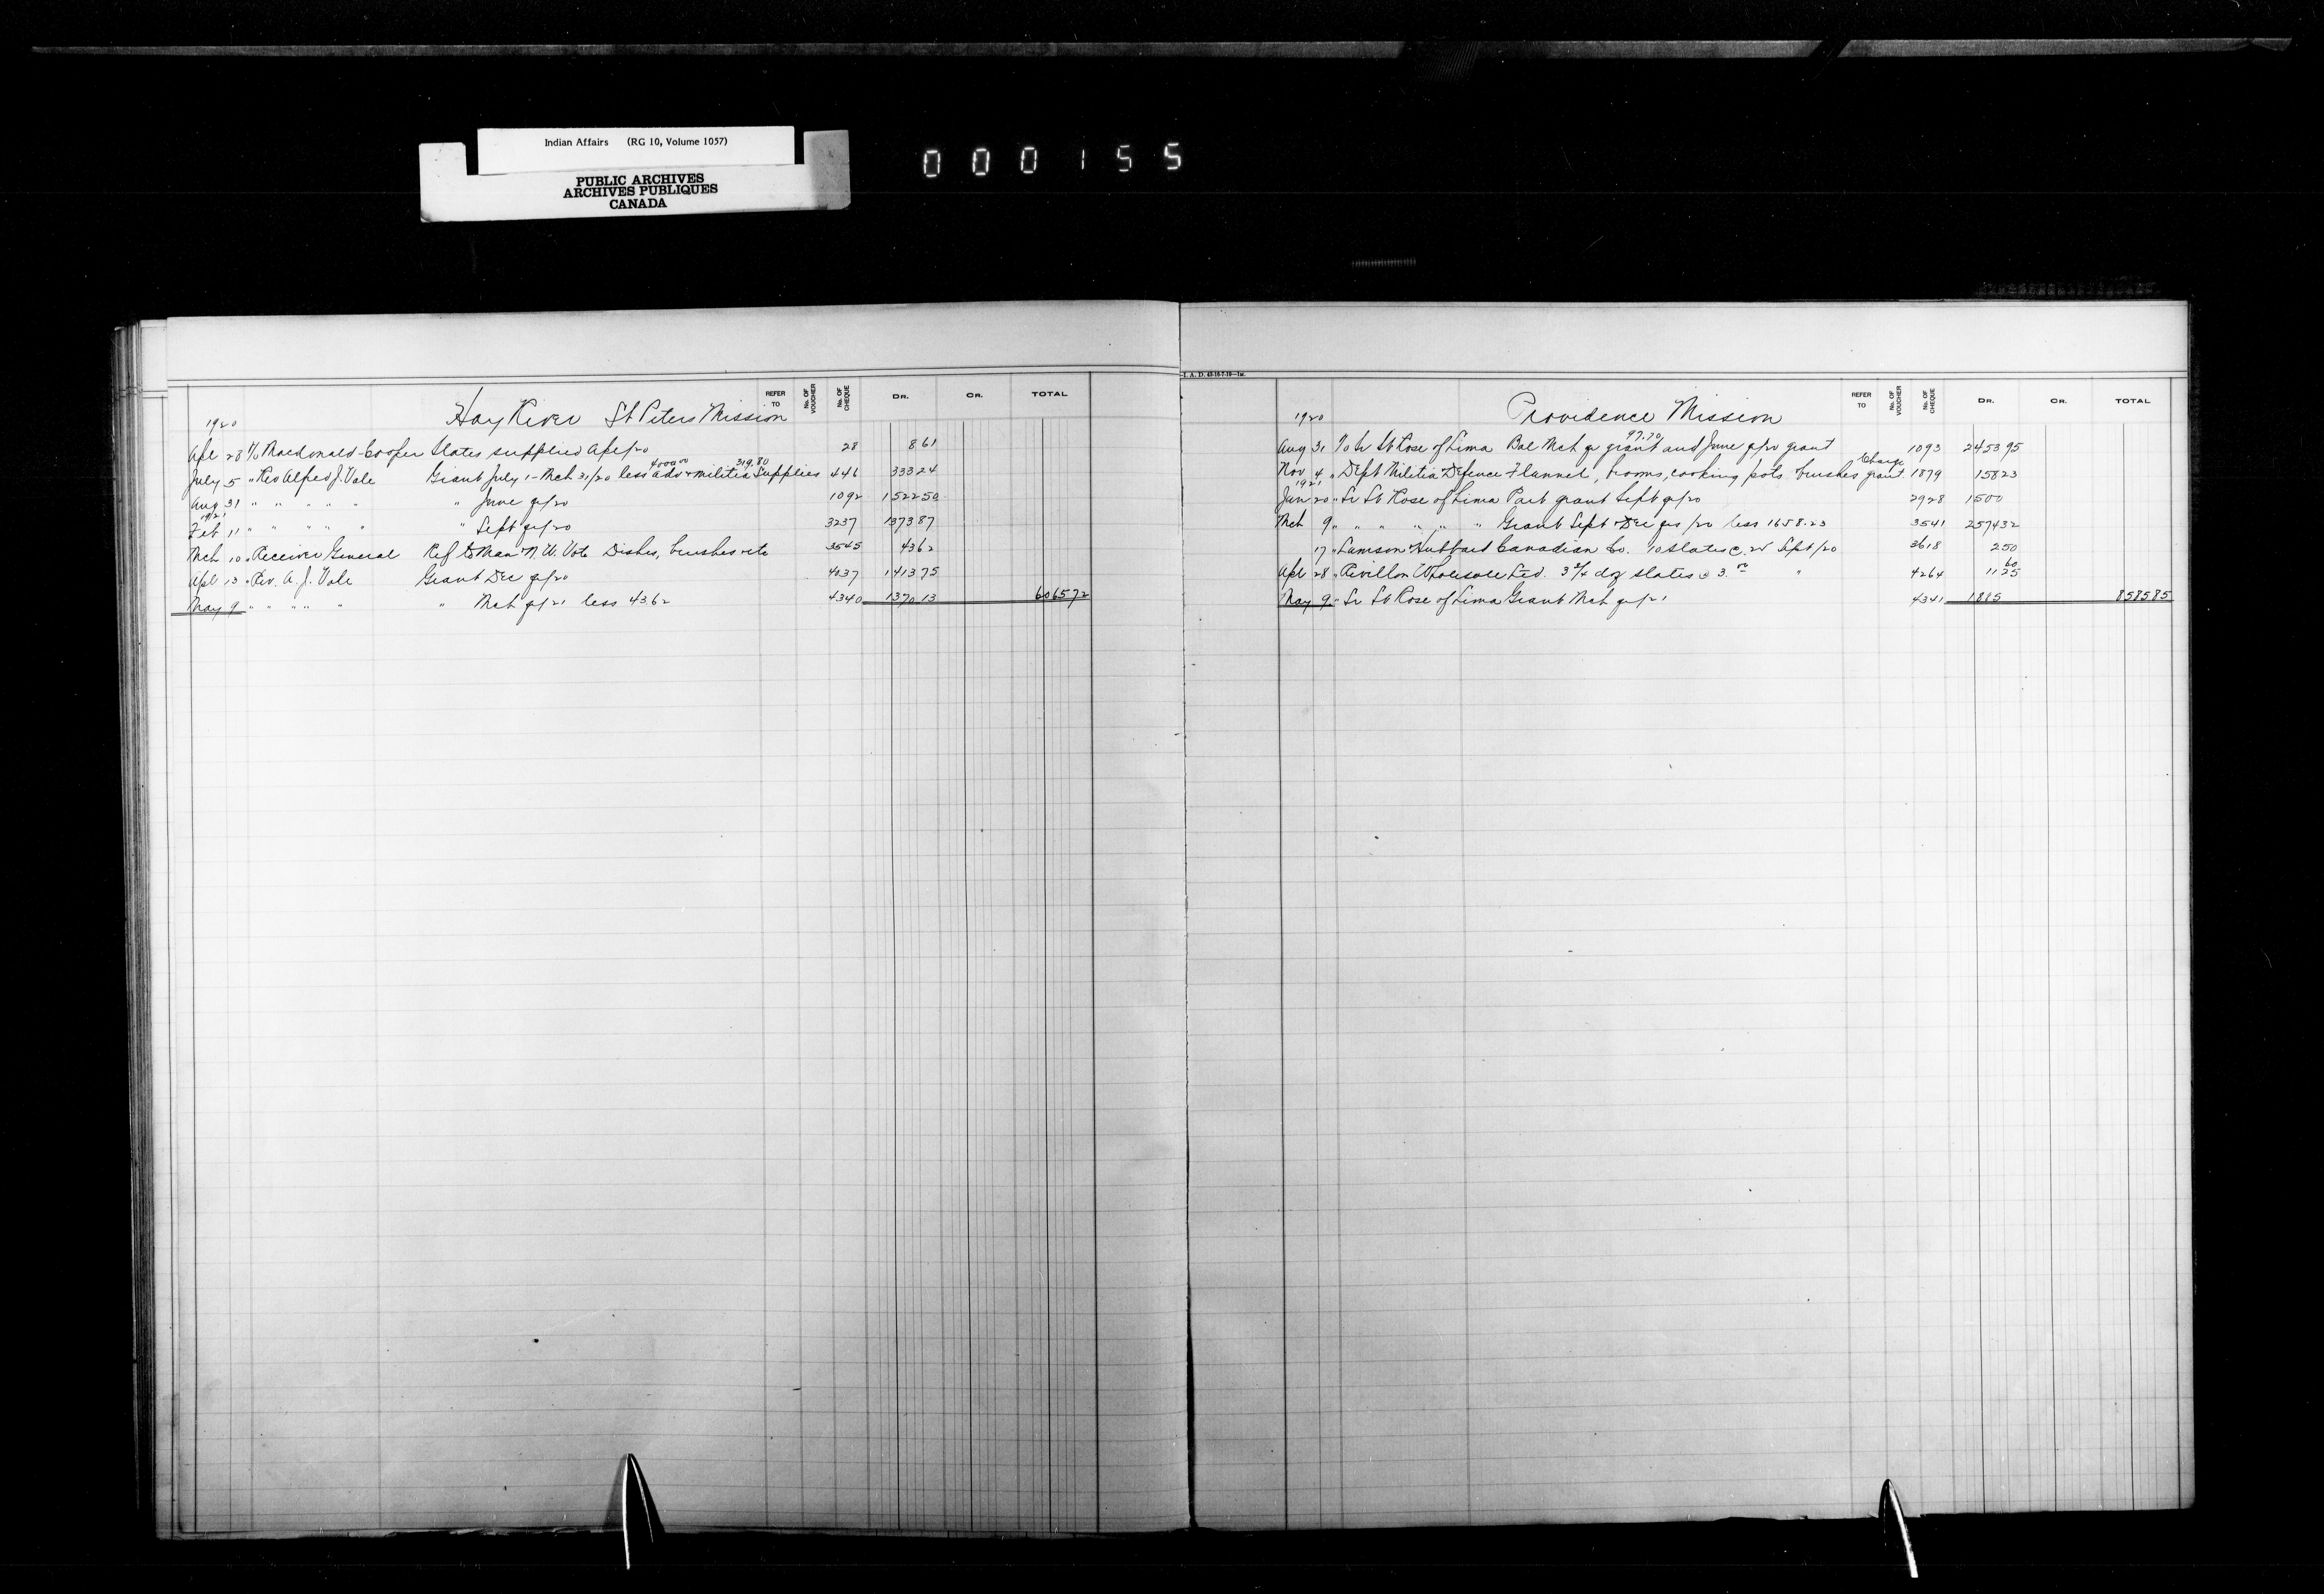 Indian Affairs (RG 10, Volume 1057)
PUBLIC ARCHIVES
ARCHIVES PUBLIQUES
CANADA
000155
REFER TO No. OF VOUCHER No. OF CHEQUE DR. CR. TOTAL
1920 Hay River St Peters Mission
Apl 28 To Macdonald-Cooper Slates supplied Apl/20 28 8 61
4000.00 319.80
July 5 " Rev Alfred J. Vale Grant July 1 - Mch 31/20 less adv & militia Supplies 446 333 24
Aug 31 " " " " " " June qr/20 1092 1522 50
1921
Feb 11 " " " " " " Sept qr/20 3237 1373 87
Mch 10 " Receiver General Ref to Man & N.W. Vote Dishes, brushes etc 3545 43 62
Apl 13 " Rev. A. J. Vale Grant Dec qr/20 4037 1413 75
May 9 " " " " " " Mch qr/21 less 43.62 4340 1370.13 6065 72
I. A. D. 43-16-7-19—1M.
REFER TO No. OF VOUCHER No. OF CHEQUE DR. CR. TOTAL
1920 Providence Mission
97.70
Aug 31 To Sr St Rose of Lima Bal Mch qr grant and June qr/20 grant 1093 2453 95
Charge
Nov 4 " Dept Militia & Defence Flannel, brooms, cooking pots brushes grant 1879 158 23
1921
Jan 20 " Sr St Rose of Lima Part grant Sept qr/20 2928 1500
Mch 9 " " " " " " Grant Sept & Dec qrs/20 less 1658.23 3541 2574 32
17 " Lamson & Hubbard Canadian Co. 10 slates @ .25 Sept/20 3618 2 50
60
Apl 28 " Revillon Wholesale Ltd. 3 3/4 doz slates @ 3.00 " 4264 11 25
May 9 " Sr St Rose of Lima Grant Mch qr/21 4341 1885 8585 85